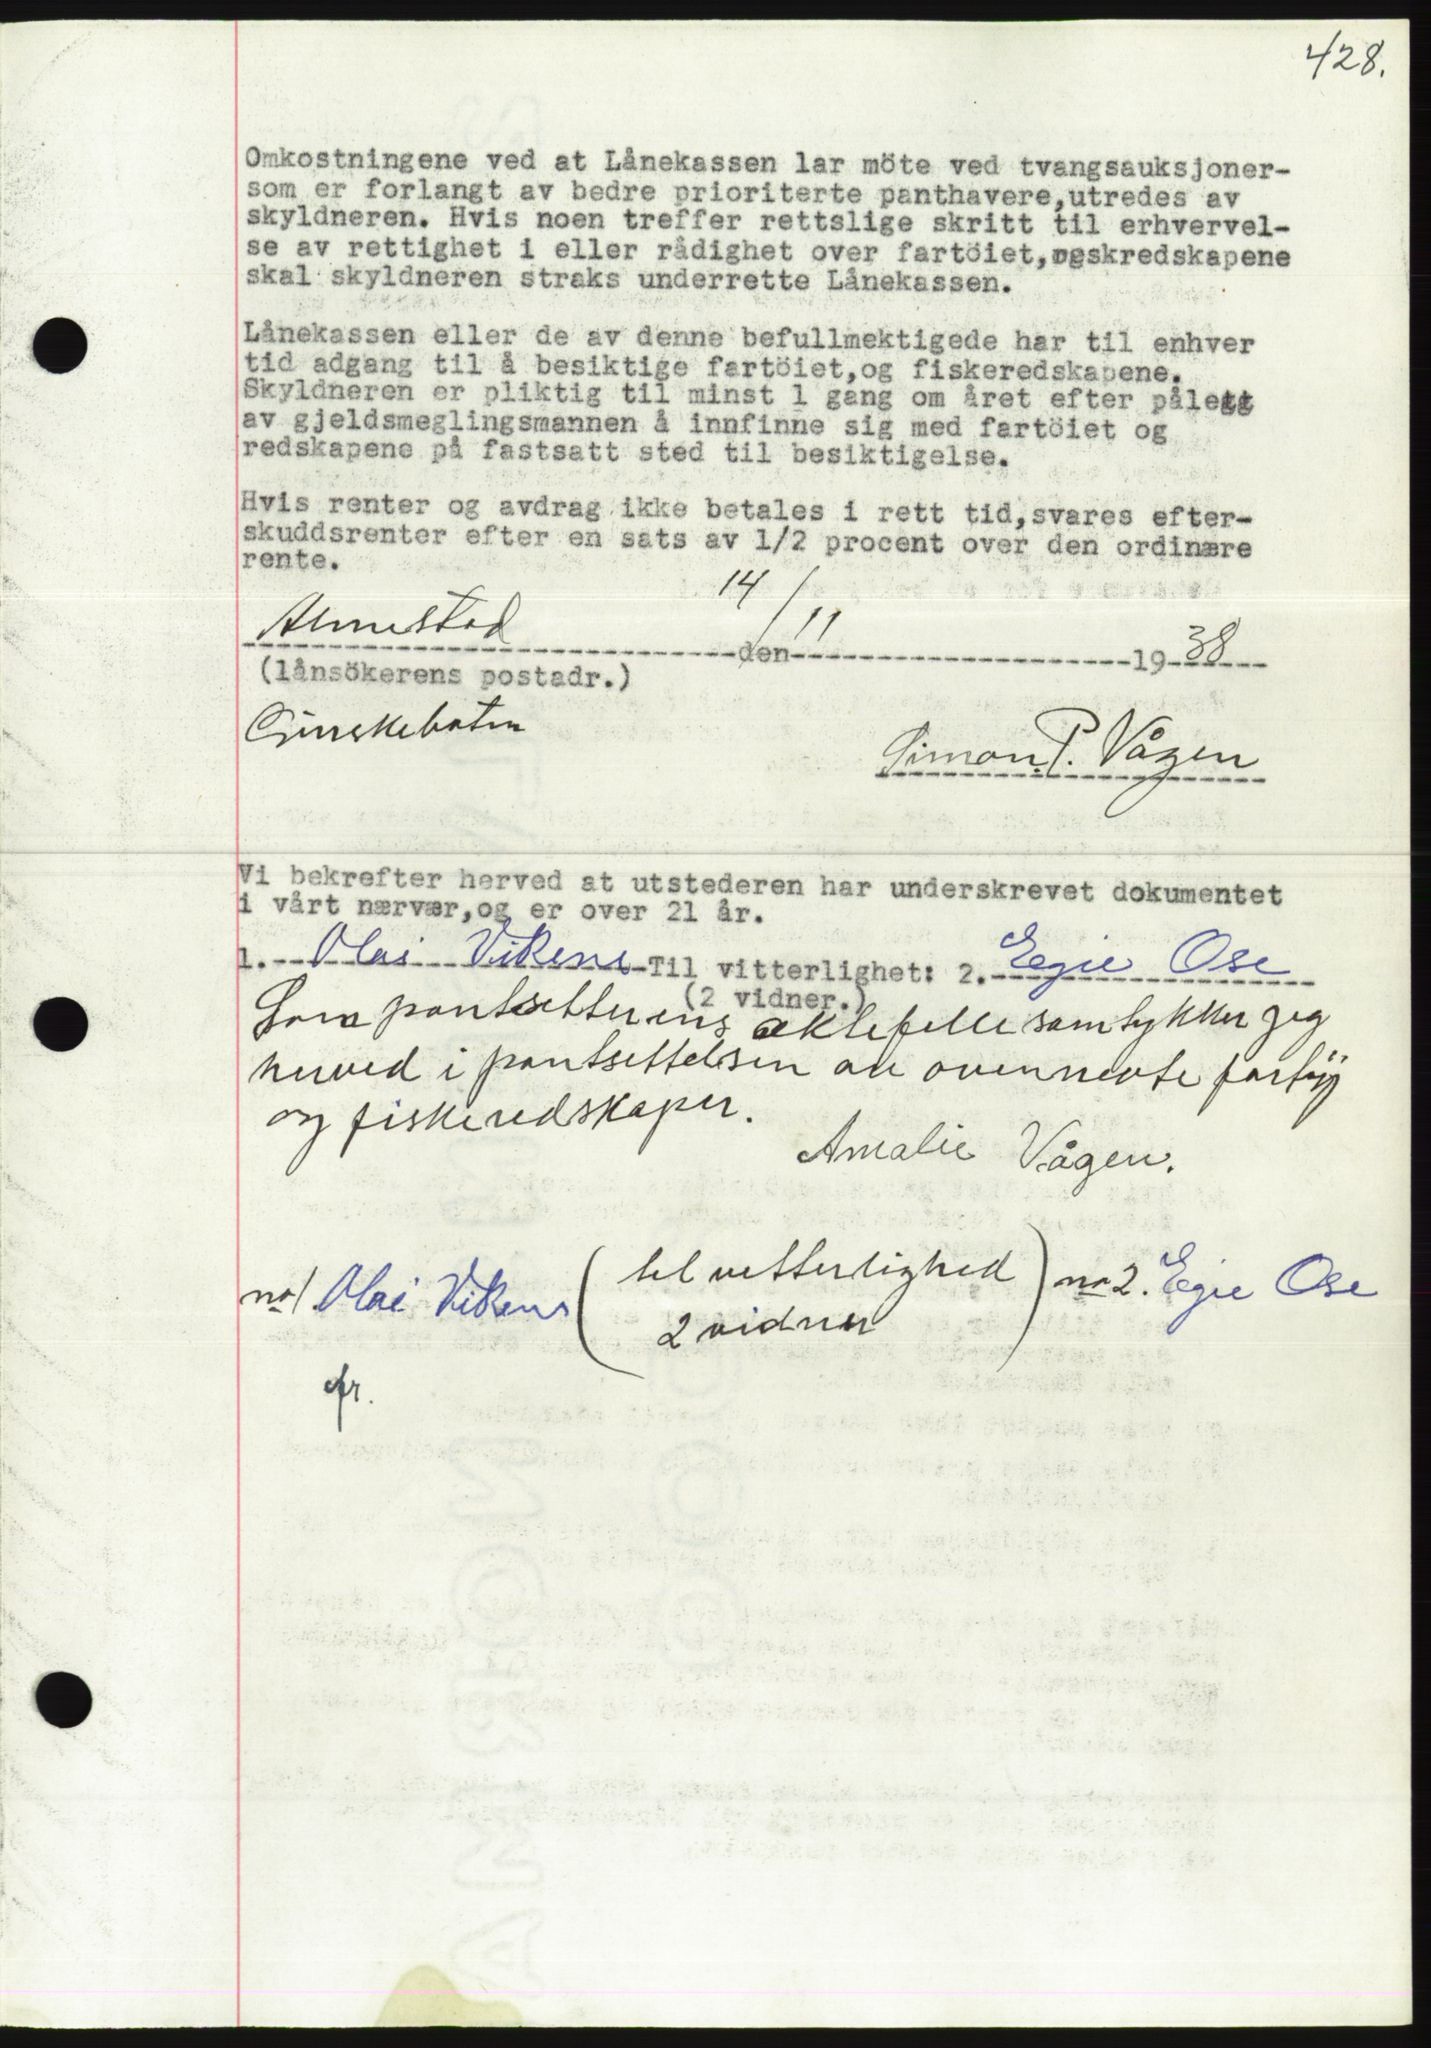 428.
Omkostningene ved at Lånekassen lar möte ved tvangsauksjoner-
som er forlangt av bedre prioriterte panthavere,utredes av
skyldneren. Hvis noen treffer rettslige skritt til erhvervel-
se av rettighet i eller rådighet over fartöiet,ogskredskapene
skal skyldneren straks underrette Lånekassen.
Lånekassen eller de av denne befullmektigede har til enhver
tid adgang til å besiktige fartöiet,og fiskeredskapene.
Skyldneren er pliktig til minst 1 gang om året efter pålegg
av gjeldsmeglingsmannen å innfinne sig med fartöiet og
redskapene på fastsatt sted til besiktigelse.
Hvis renter og avdrag ikke betales i rett tid,svares efter-
skuddsrenter efter en sats av 1/2 procent over den ordinære
rente.
Almestad den 14/11 1938
(lånsökerens postadr.)
Simon. P. Vågen
Vi bekrefter herved at utstederen har underskrevet dokumentet
i vårt nærvær,og er over 21 år.
1. Olai Vikens Til vitterlighet: 2. Egie Ose
(2 vidner.)
Som pantsetterens æktefelle samtykker jeg
herved i pantsettelsen av ovennevte fartöj
og fiskeredskaper.
Amalie Vågen.
no 1 Olai Vikens ( til vitterlighed ) no 2. Egie Ose
2 vidner